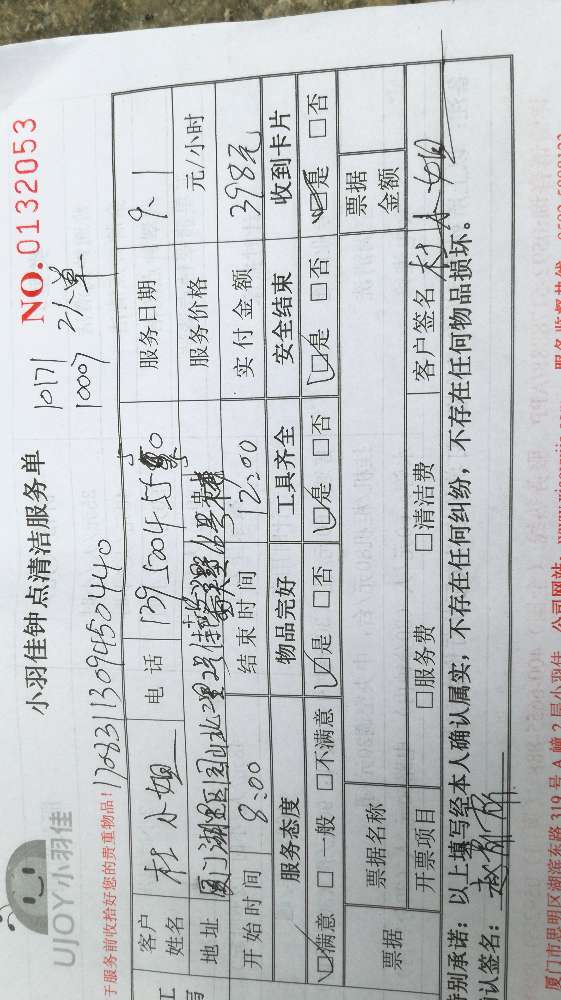 UJOY小羽佳
小羽佳钟点清洁服务单
NO.0132053
10171
10009 2人单
1728311309450440
于服务前收拾好您的贵重物品!
客户姓名 杜小姐 电话 服务日期 9.1
地址 厦门湖里区 服务价格 元/小时
开始时间 8:00 结束时间 12:00 实付金额 398元
服务态度 物品完好 工具齐全 安全结束 收到卡片
满意 □一般 □不满意 是 □否 是 □否 是 □否 是 □否
票据 票据名称 票据金额
开票项目 □服务费 □清洁费 客户签名
别承诺:以上填写经本人确认属实,不存在任何纠纷,不存在任何物品损坏。
认签名:
厦门市思明区湖滨东路 319 号 A 幢 2 层小羽佳 公司网站:
服务监督热线: